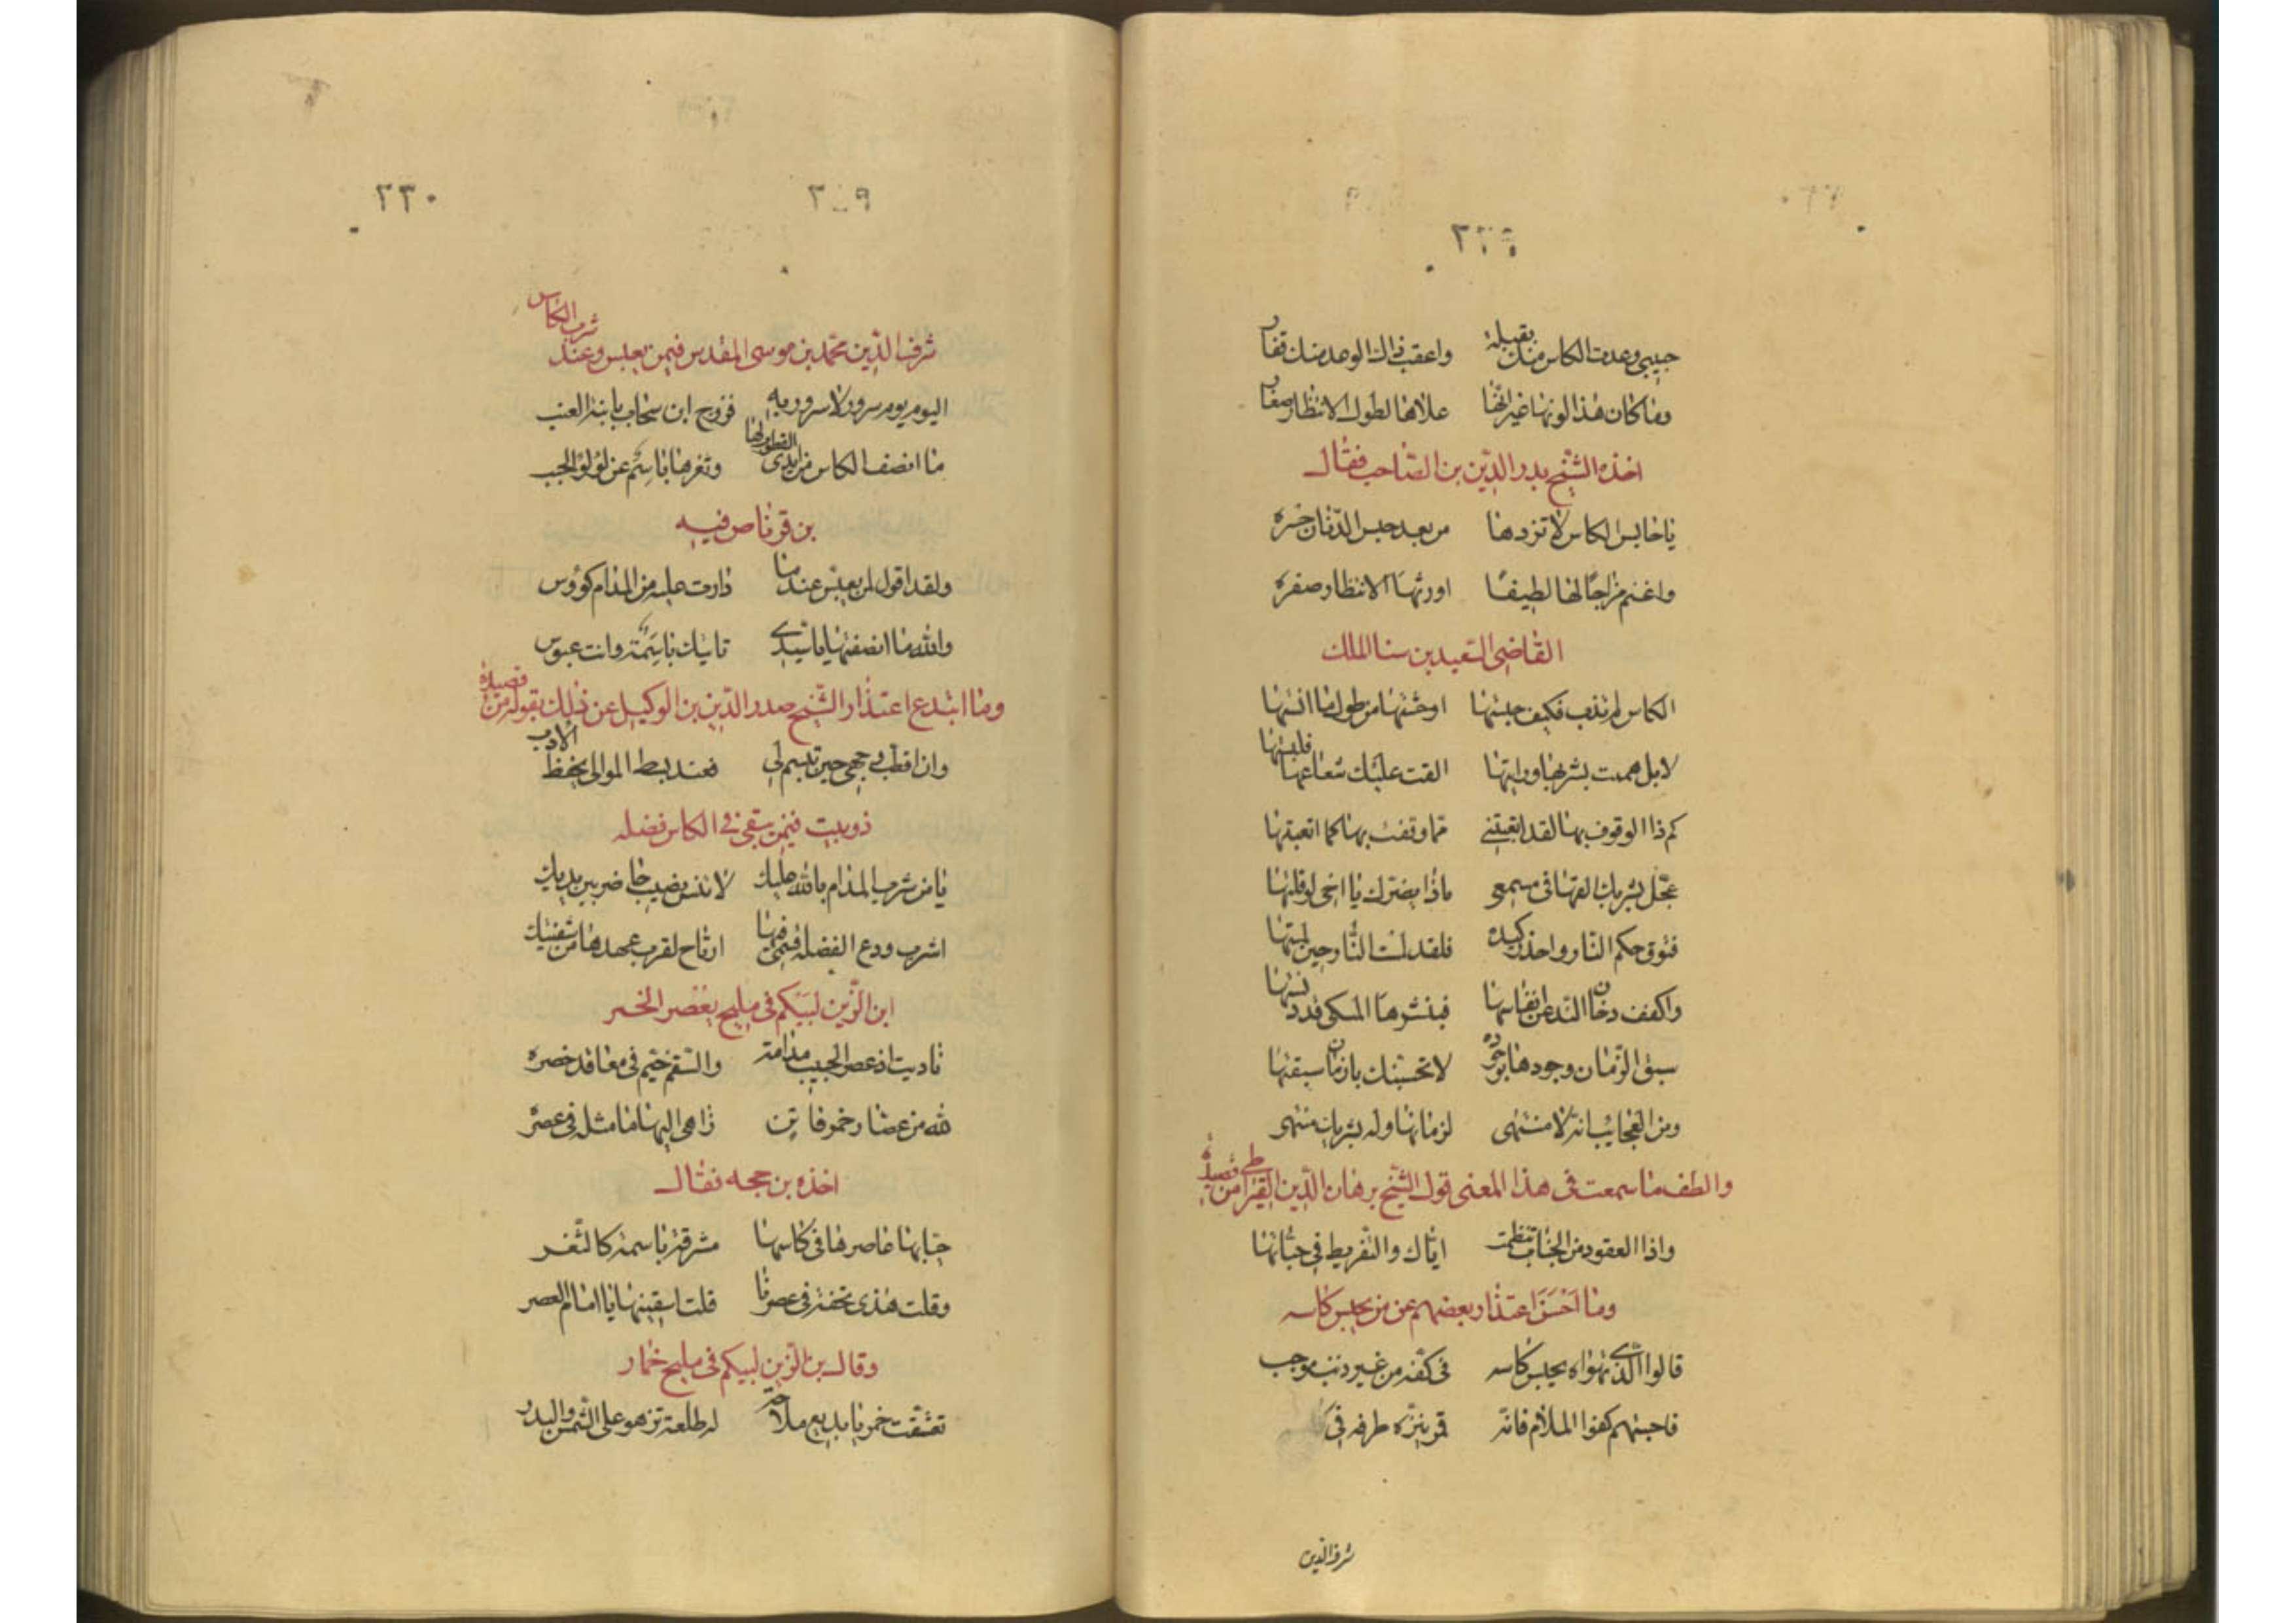 حبيبي وعدت الكاس منك بقبلة واعقب ذاك الوعد منك نفار
وما كان هذا لونها غير انها علاها لطول الانتظار صفار
اخذه الشيخ بدر الدين بن الصاحب فقال
يا حابس الكاس لا تزدها من بعد حبس الدنان حسره
واغنم مزاجا لها لطيفا اورثها الانتظار صفره
القاضي السعيد بن سنا الملك
الكاس لم تذنب فكيف حبستها اوحشتها من طول ما انستها
لا بل هممت بشربها ورايتها القت عليك شعاعها فلبستها
كم ذا الوقوف بها لقد اتعبتني مما وقفت بها كما اتعبتها
عجل بشربك لفهتا في مسمعي ماذا يضرك يا اخي لو قلتها
فتوق حكم النار واحذر كيده فلقد لمست النار حين لمستها
واكفف دخان الند عن انفاسها فبنشرها المسكي قد
سبق الزمان وجودها بوجوده لا تحسبنك يا زمان سبقتها
ومن العجايب انه لا منتهى لزمانها وله بشربك منتهى
والطف ما سمعت في هذا المعنى قول الشيخ برهان الدين القيراطي من قصيدة
واذا العقود من الحباب تنظمت اياك والتفريط في حباتها
وما احسن اعتذار بعضهم عن من يحبس كاسه
قالوا الذي تهواه يحبس كاسه في كفه من غير ذنب موجب
فاجبتهم كفوا الملام فانه قمر ينزه طرفه في
شرف الدين
٢٣٠
شرف الدين محمد بن موسى المقدسي فيمن يعبس وعند شرب الكاس
اليوم يوم سرور لا سرور به فزوج ابن سحاب بابنة العنب
ما انصف الكاس من ابدى القطوب لها وثغرها باسم عن لؤلؤ الحبب
بن قرناص فيه
ولقد اقول لمن يعبس عندما دارت عليه من المدام كووس
والله ما انصفتها يا سيدي تاتيك باسمة وانت عبوس
وما ابدع اعتذار الشيخ صدر الدين بن الوكيل عن ذلك بقوله من قصيدة
وان اقطب وجهي حين تبسم لي فعند بسط الموالي يحفظ الادب
دوبيت فيمن يبقي في الكاس فضله
يا من شرب المدام بالله عليك لا تنس نصيب حاضر بين يديك
اشرب ودع الفضلة فيها ارتاح لقرب عهدها من شفتيك
ابن الزين لبيكم في مليح يعصر الخمر
ناديت اذ عصر الحبيب مدامة والسقم خيم في معاقد خصره
لله من عصار خمر فاتن زاهي البها ما مثله في عصره
اخذه بن حجه فقال
حبابها عاصرها في كاسها مشرقة باسمة كالثغر
وقلت هذي تحفة في عصرنا قلت اسقينها يا امام العصر
وقال بن الزين لبيكم في مليح خمار
تعشقت خمريا بديع ملاحة له طلعة تزهو على الشمس والبدر